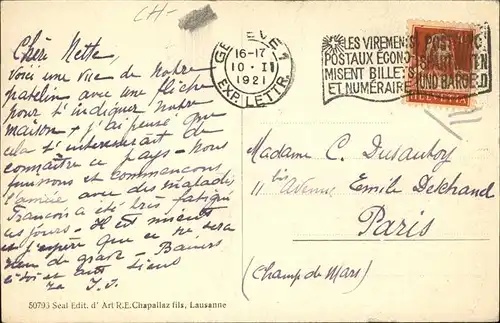 CH-
Chère Nette,
Voici une vue de notre
patelin avec une flèche
pour t'indiquer notre
maison + j'ai pensé que
cela t'intéresserait de
connaître ce pays - Nous
finissons et commençons
l'année avec des maladies
François a été très fatigué
ces jours - Il est mieux
et j'espère que ce ne sera
rien de grave - Baisers
à toi et aux tiens
GENÈVE 1
16-17
10·I
1921
EXP. LETTR.
LES VIREMENTS
POSTAUX ÉCONO-
MISENT BILLETS
ET NUMÉRAIRE
HELVETIA
Madame C. Dutauboy
11 bis Avenue Emile Deschanel
Paris
(Champ de Mars)
50793 Seal Edit. d'Art R.E. Chapallaz fils, Lausanne